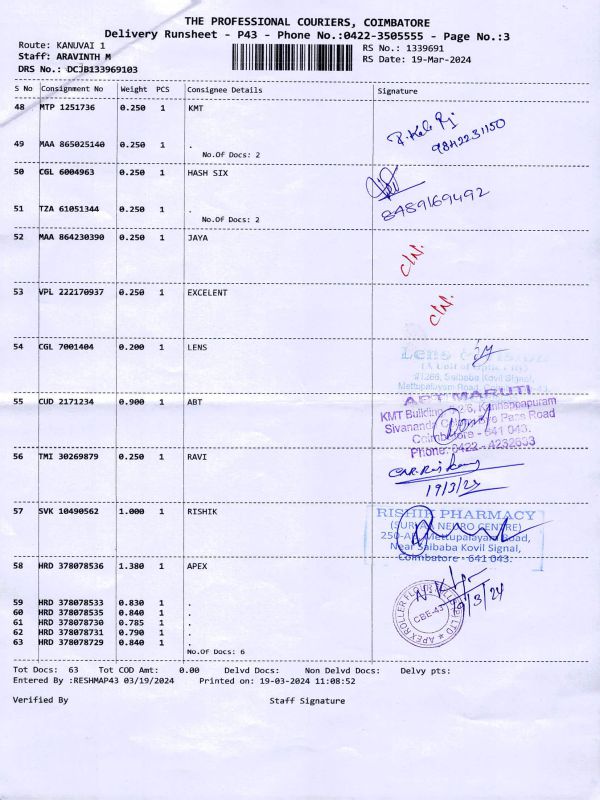 THE PROFESSIONAL COURIERS, COIMBATORE
Delivery Runsheet - P43 - Phone No.:0422-3505555 - Page No.:3
Route: KANUVAI 1
RS No.: 1339691
Staff: ARAVINTH M
RS Date: 19-Mar-2024
DRS No.: DCJB133969103
S No Consignment No Weight PCS Consignee Details Signature
48 MTP 1251736 0.250 1 KMT
9842231150
49 MAA 865025140 0.250 1 .
No.Of Docs: 2
50 CGL 6004963 0.250 1 HASH SIX
8489169492
51 TZA 61051344 0.250 1 .
No.Of Docs: 2
52 MAA 864230390 0.250 1 JAYA
C/N.
53 VPL 222170937 0.250 1 EXCELENT
C/N.
54 CGL 7001404 0.200 1 LENS
Lens &
#1266, Saibaba Kovil Signal,
Mettupalayam Road,
55 CUD 2171234 0.900 1 ABT
ABT MARUTI
KMT Building, Kannappapuram
Sivananda Pass Road
Coimbatore - 641 043.
Phone: 0422 - 4232603
56 TMI 30269879 0.250 1 RAVI
19/3/24
57 SVK 10490562 1.000 1 RISHIK
RISHIK PHARMACY
(SURYA NEURO CENTRE)
Mettupalayam Road,
Near Saibaba Kovil Signal,
Coimbatore - 641 043.
58 HRD 378078536 1.380 1 APEX
19/3/24
APEX ROLLER FLOUR LTD
CBE-43
59 HRD 378078533 0.830 1 .
60 HRD 378078535 0.840 1 .
61 HRD 378078730 0.785 1 .
62 HRD 378078731 0.790 1 .
63 HRD 378078729 0.840 1 .
No.Of Docs: 6
Tot Docs: 63 Tot COD Amt: 0.00 Delvd Docs: Non Delvd Docs: Delvy pts:
Entered By :RESHMAP43 03/19/2024 Printed on: 19-03-2024 11:08:52
Verified By Staff Signature